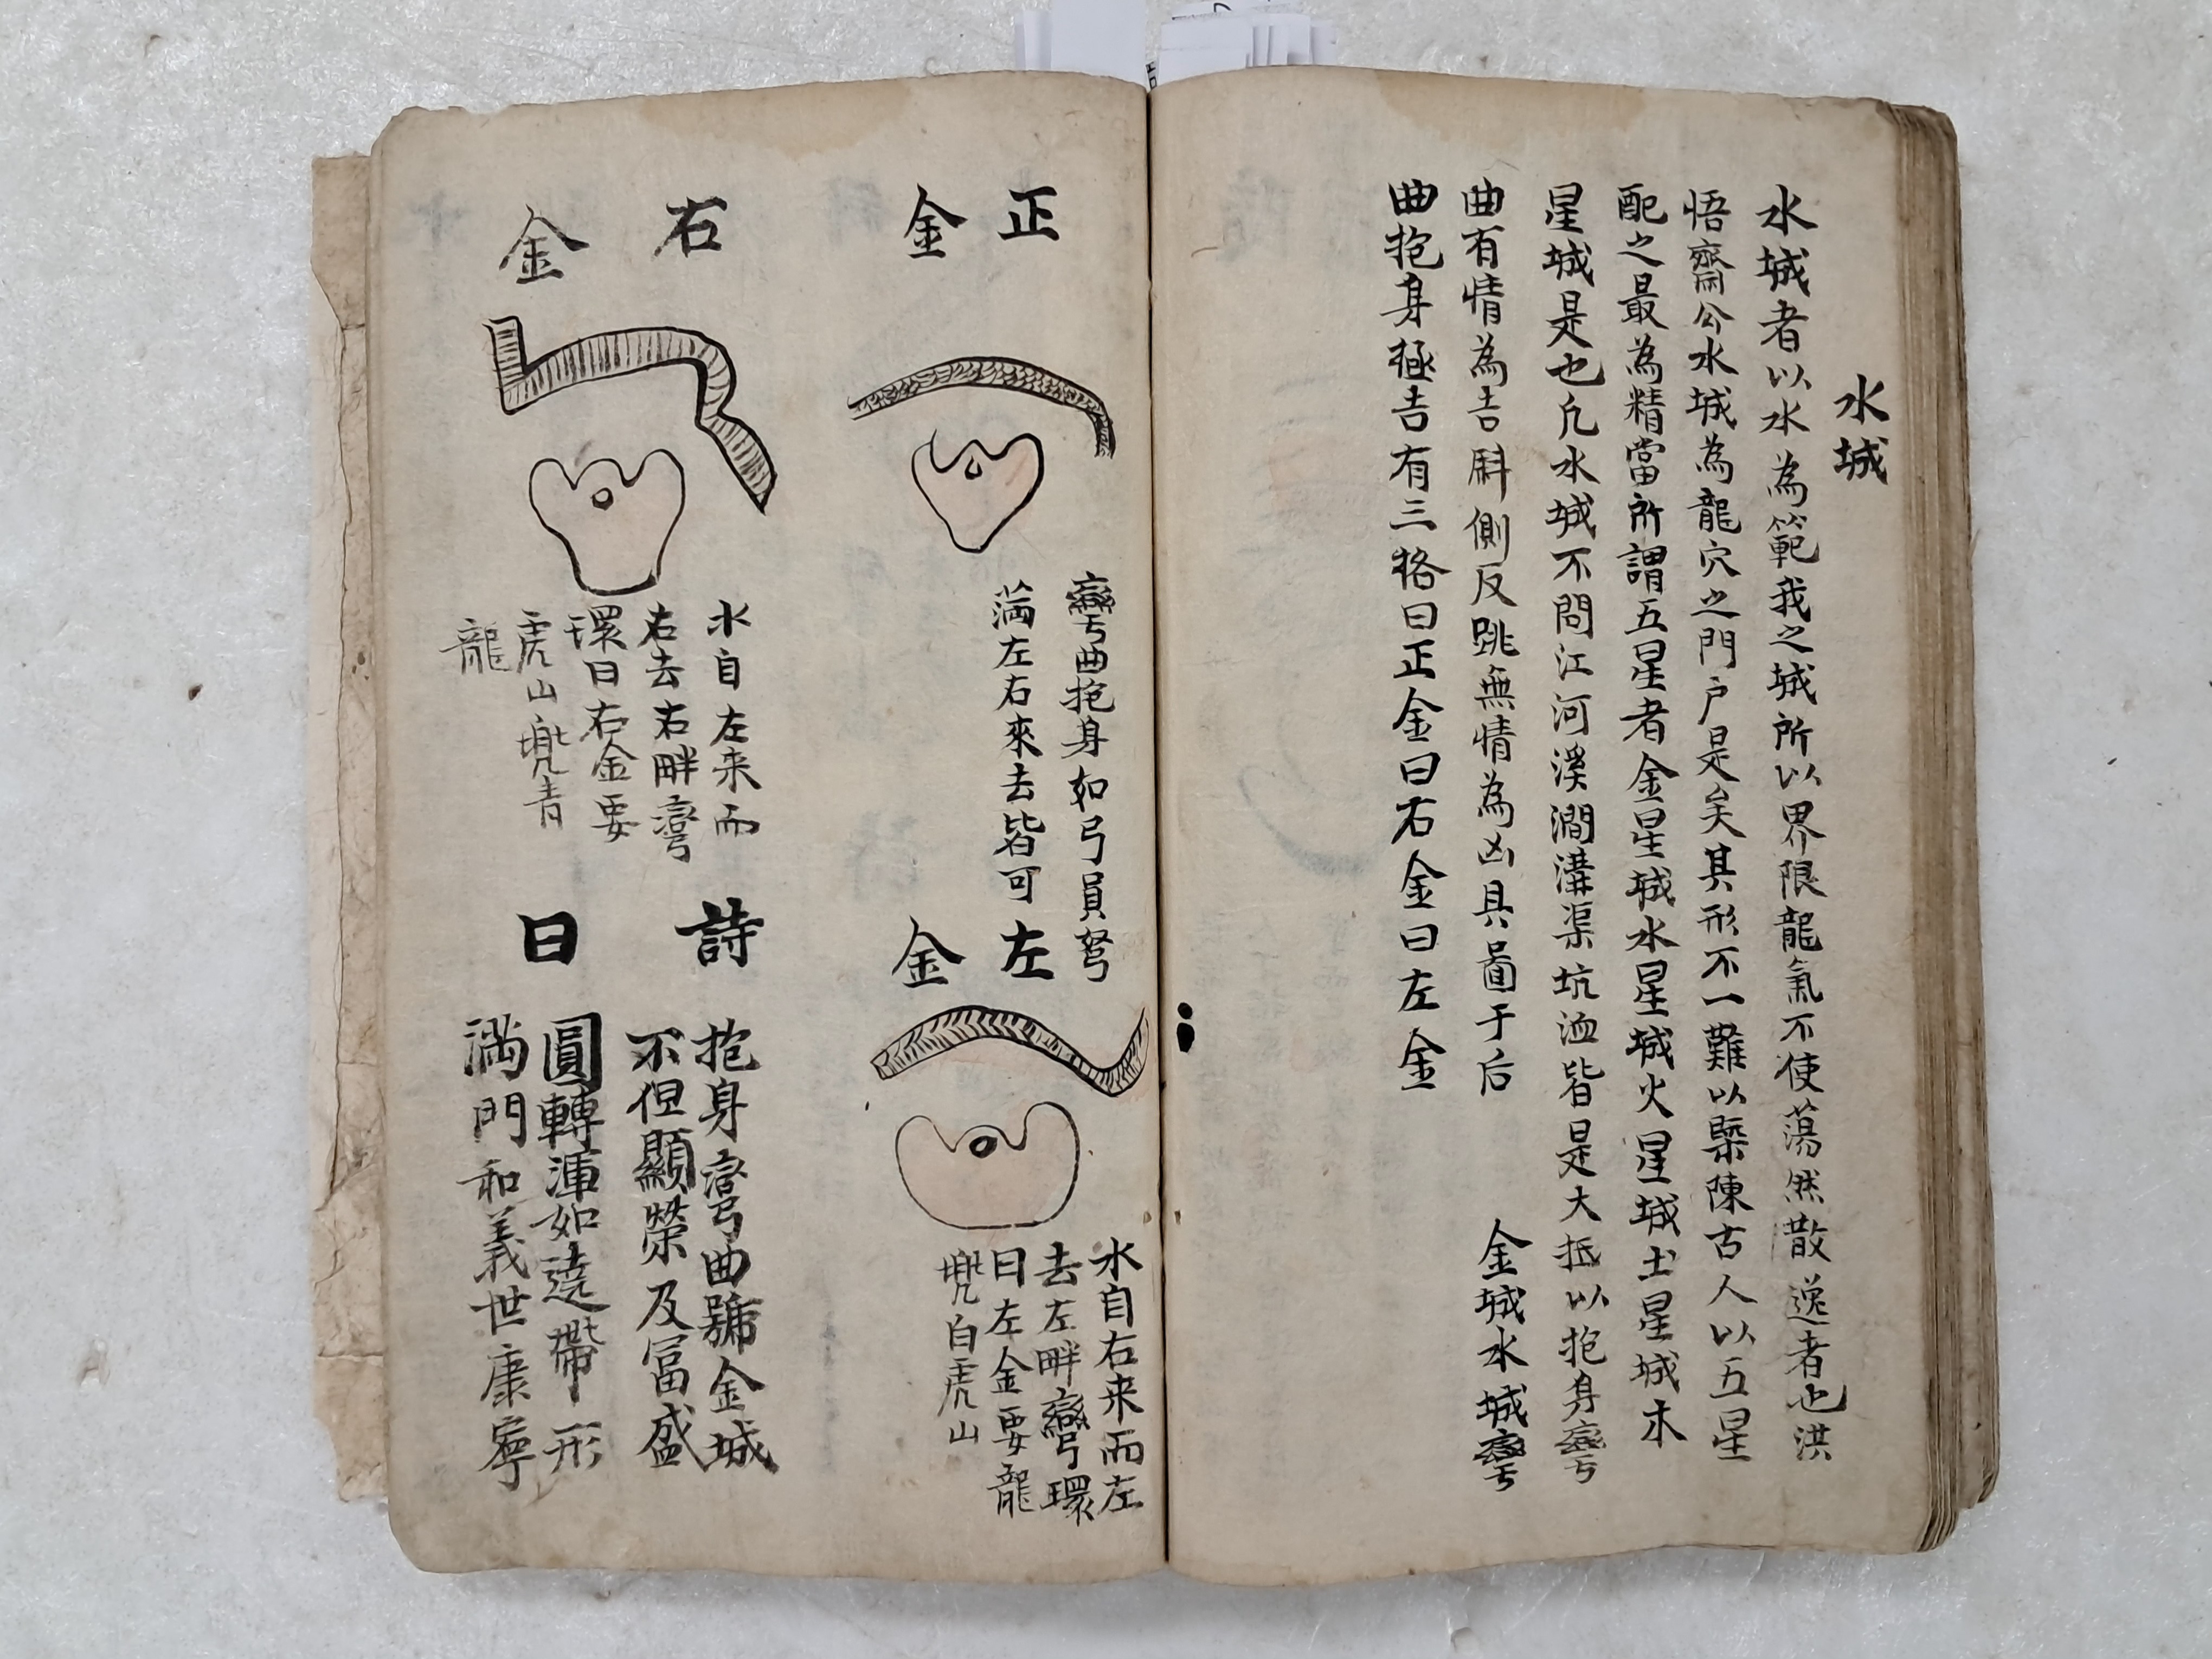 水城
水城者以水為範我之城所以界限龍氣不使蕩然散逸者也洪
悟齋公水城為龍穴之門户是矣其形不一難以槩陳古人以五星
配之最為精當所謂五星者金星城水星城火星城土星城木
星城是也凢水城不問江河溪澗溝渠坑洫皆是大抵以抱身彎
曲有情為吉斜側反跳無情為凶具圖于后
金城水城彎
曲抱身極吉有三格曰正金曰右金曰左金
正金
彎曲抱身如弓員弩
滿左右來去皆可
左金
水自右来而左
去左畔彎環
曰左金要龍
兜白虎山
右金
水自左来而
右去右畔彎
環曰右金要
虎山兜青
龍
詩曰
抱身彎曲號金城
不但顯榮及富盛
圓轉渾如遶帶形
滿門和義世康寧